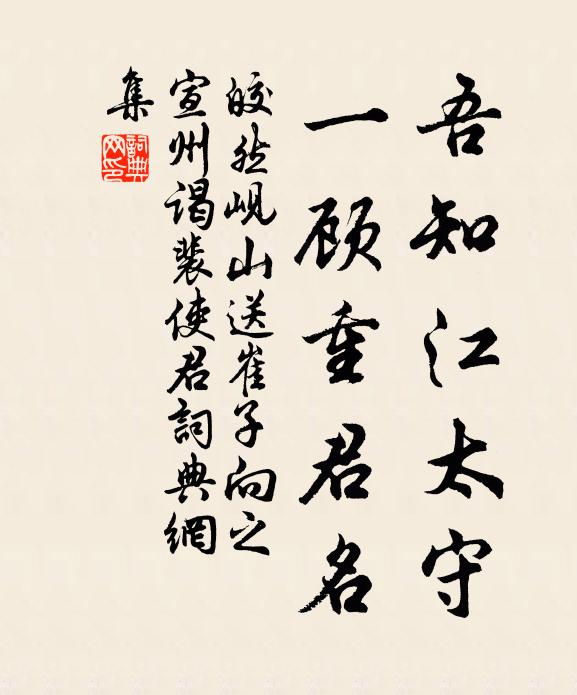 吾知江太守
一顾重君名
皎然岘山送崔子向之
宣州谒裴使君詞典網
集
詞典網印